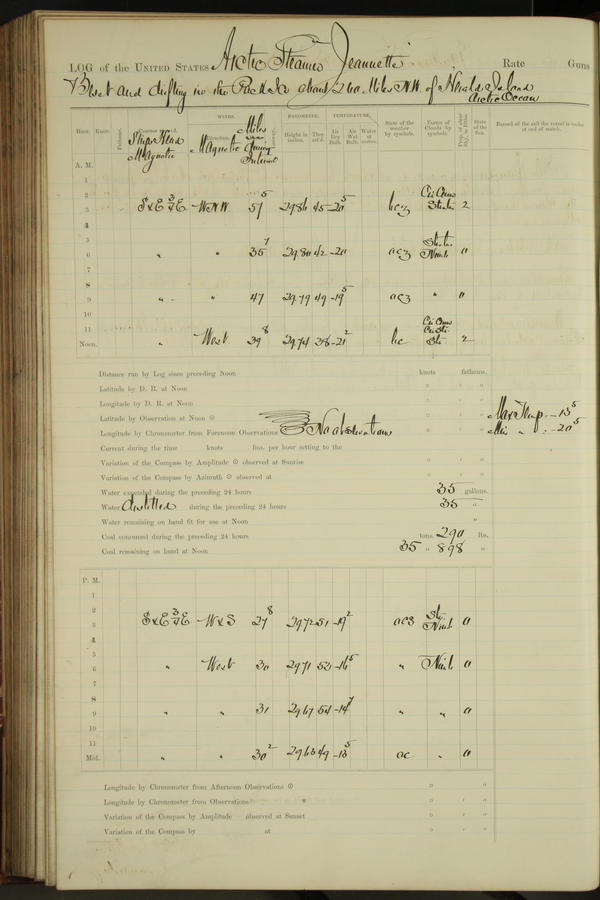 LOG of the UNITED STATES Arctic Steamer Jeannette Rate Guns
Beset and drifting in the Pack Ice about 260 Miles N.W. of Herald Island
Arctic Ocean
WINDS. BAROMETER. TEMPERATURE.
Hour. Knots. Fathoms. Ships Head Magnetic Direction Magnetic Miles During Interval Height in inches. Ther. att'd. Air Dry Bulb. Air Wet Bulb. Water at surface. State of the weather by symbols. Forms of Clouds by symbols. State of the Sea. Record of the sail the vessel is under at end of watch.
A. M.
1
2
3 S x E ¾ E W.N.W. 57 5 29 86 45 -20 5 bcz Cir Cum Strat. 2
4
5
6 " " 35 7 29.80 42 -20 ocz Strat. Nimb 0
7
8
9 " " 47 29.79 49 -19 5 ocz " 0
10
11
Noon. " West 39 8 29.74 38 -21 2 bc Cir Cum Cir Str Str 2
Distance run by Log since preceding Noon knots fathoms.
Latitude by D. R. at Noon
Longitude by D. R. at Noon
Latitude by Observation at Noon Max Temp. -13 5
Longitude by Chronometer from Forenoon Observations No observations Min " -20 5
Current during the time knots fms. per hour setting to the
Variation of the Compass by Amplitude observed at Sunrise
Variation of the Compass by Azimuth observed at
Water expended during the preceding 24 hours 35 gallons.
Water distilled during the preceding 24 hours 35 "
Water remaining on hand fit for use at Noon "
Coal consumed during the preceding 24 hours tons. 290 lbs.
Coal remaining on hand at Noon 35 " 898 "
P. M.
1
2
3 S x E ¾ E W x S 27 8 29 72 51 -19 2 ocs Str Nimb 0
4
5
6 " West 30 29 71 53 -16 5 " Nimb 0
7
8
9 " " 31 29 67 54 -14 7 " " 0
10
11
Mid. " " 30 2 29 63 49 -13 5 oc " 0
Longitude by Chronometer from Afternoon Observations
Longitude by Chronometer from Observations
Variation of the Compass by Amplitude observed at Sunset
Variation of the Compass by at